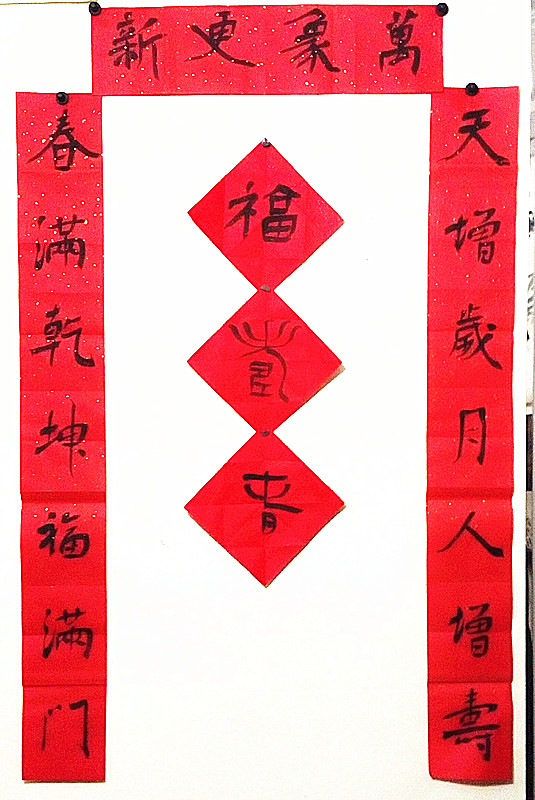 萬象更新
天增歲月人增壽
春滿乾坤福滿门
福